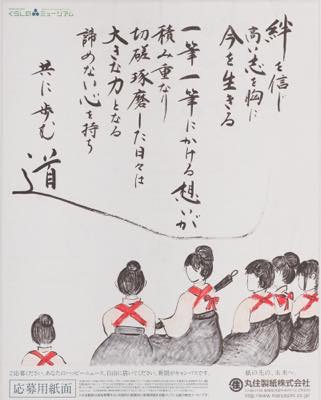 くらしにミュージアム
絆を信じ
高い志を胸に
今を生きる
一筆一筆にかける想いが
積み重なり
切磋琢磨した日々は
大きな力となる
諦めない心を持ち
共に歩む
道
ご応募ください、あなたのハッピーニュース。自由に描いてください、新聞がキャンバスです。
応募用紙面
紙の先の、未来へ。
丸住製紙株式会社